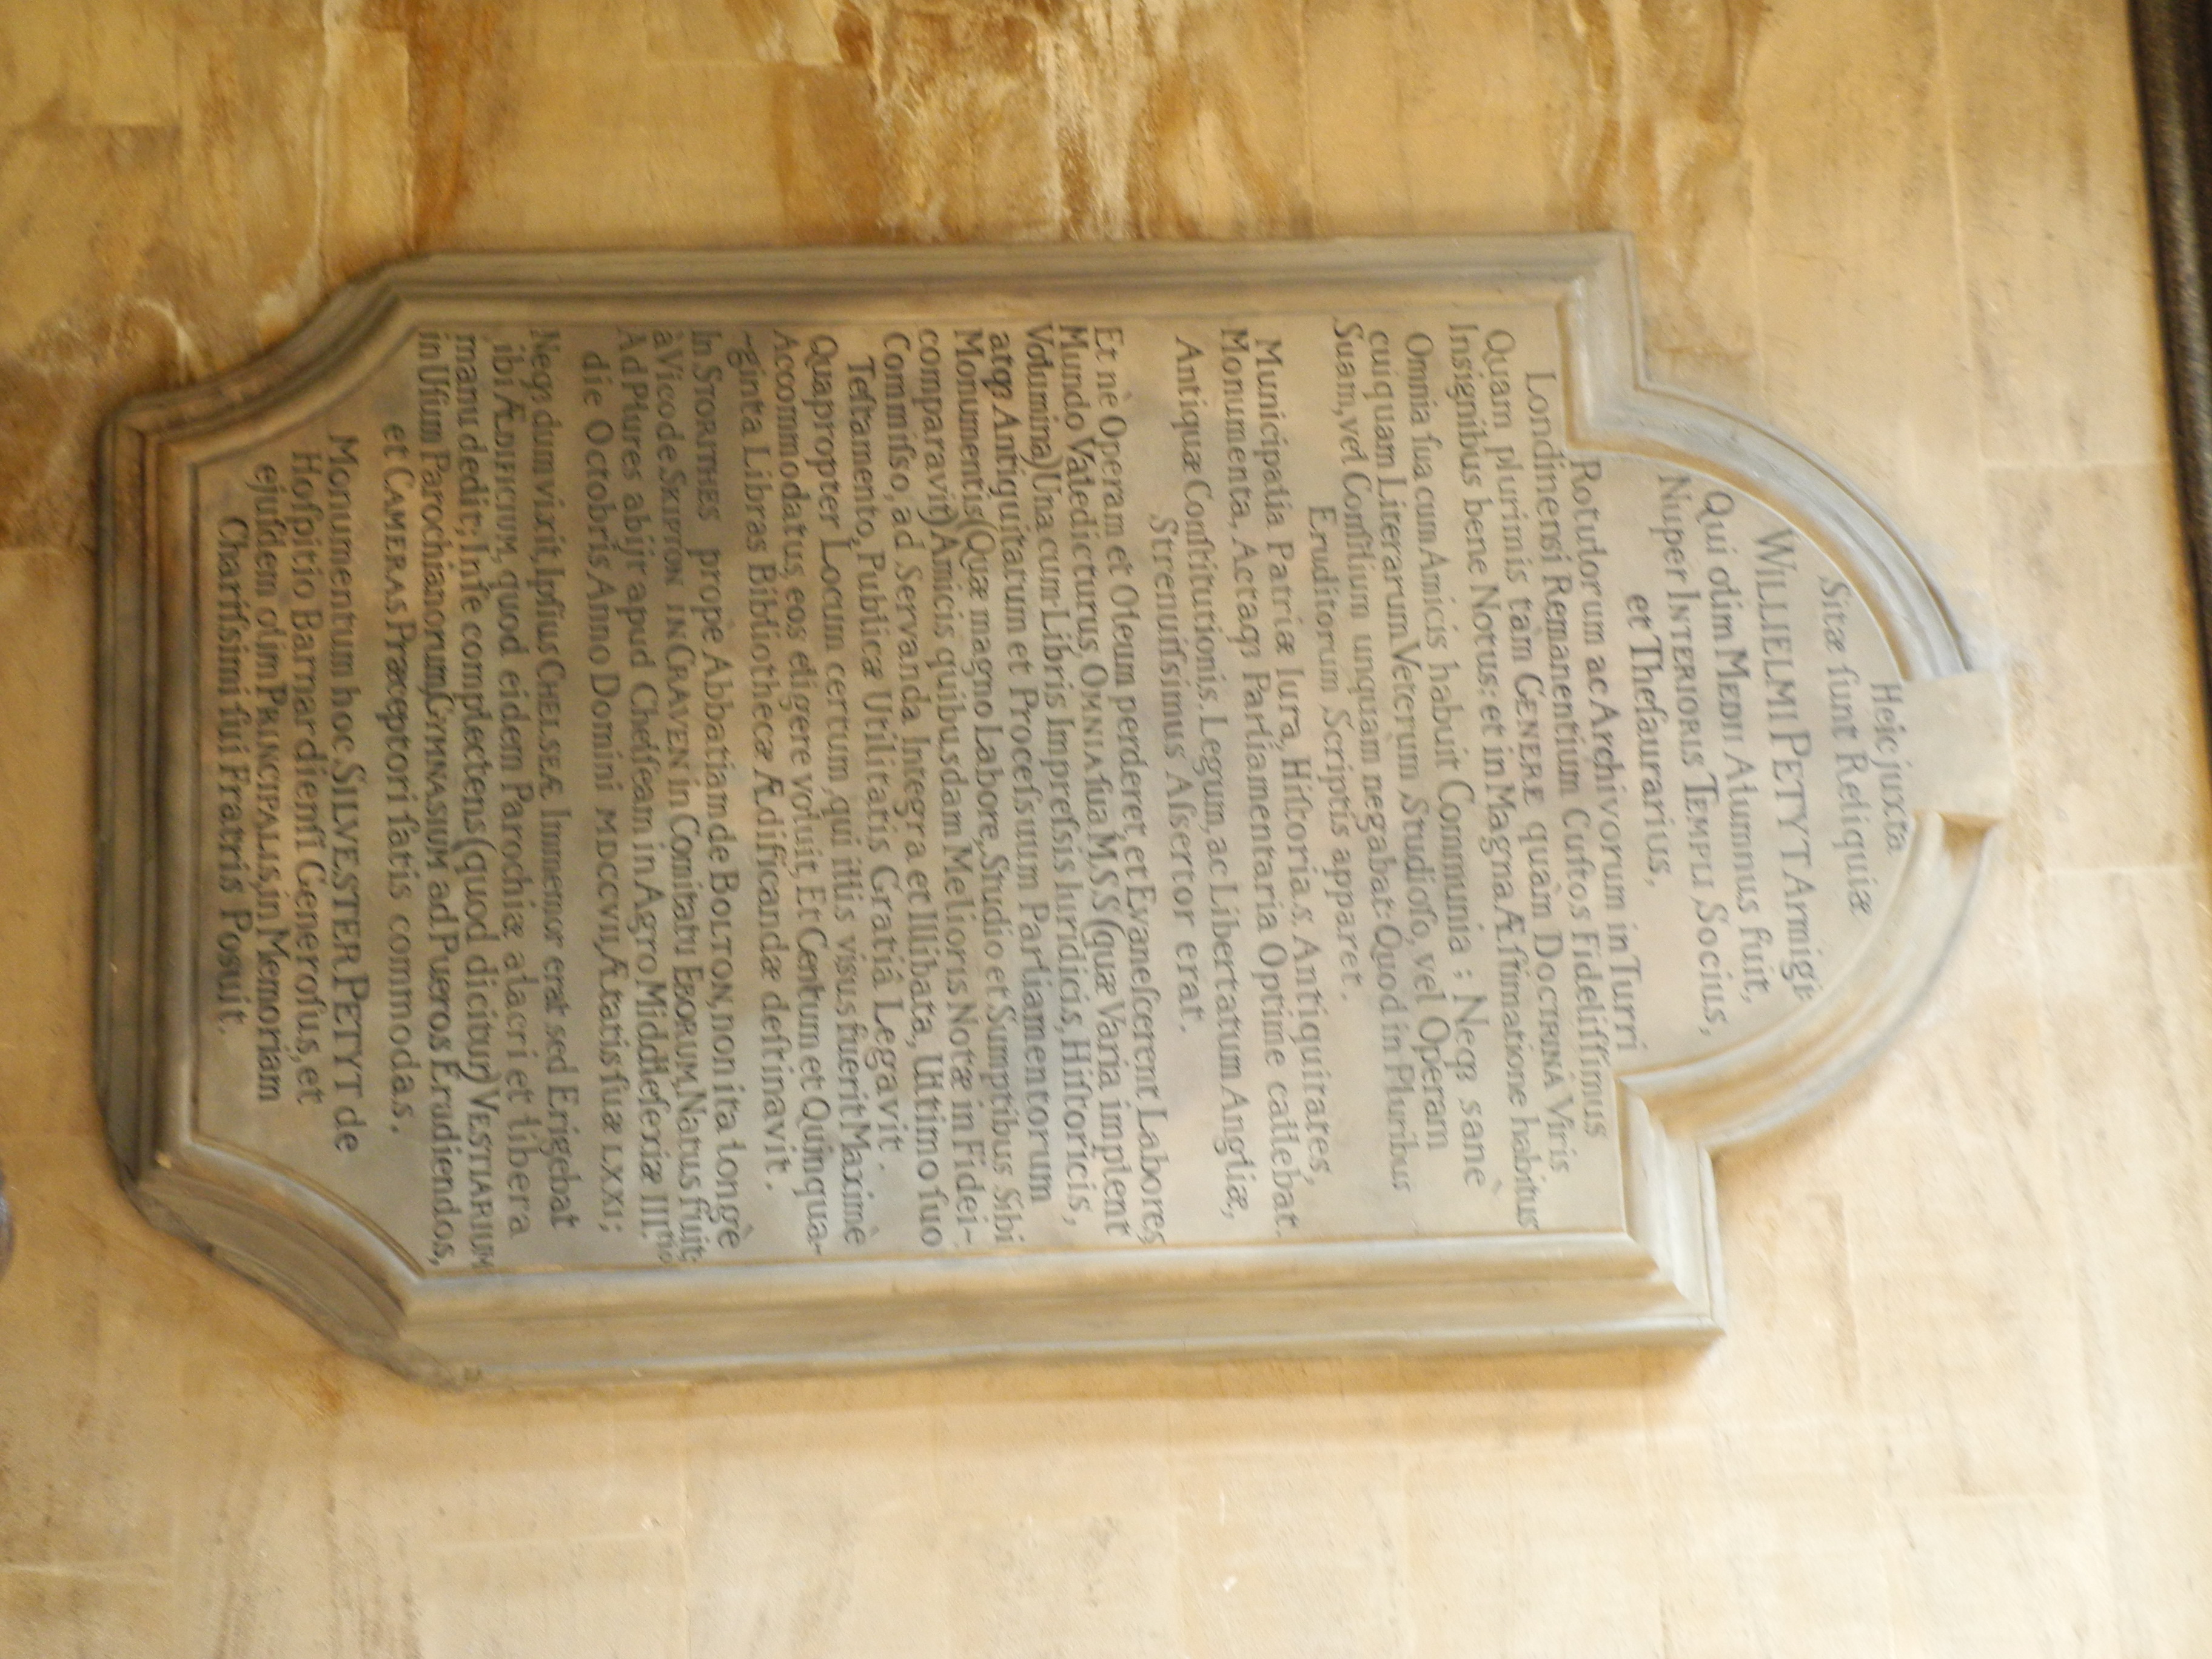 Heic juxta
Sitæ ſunt Reliquiæ
WILLIELMI PETYT Armigi:
Qui olim MEDII Alumnus fuit,
Nuper INTERIORIS TEMPLI Socius,
et Theſaurarius,
Rotulorum ac Archivorum in Turri
Londinenſi Remanentium Cuſtos Fideliſſimus
Quam plurimis tàm GENERE quàm DOCTRINA Viris
Insignibus bene Notus; et in Magna Æſtimatione habitus
Omnia ſua cum Amicis habuit Communia; Neqз sanè
cuiquam Literarum Veterum Studioſo, vel Operam
Suam, vel Conſilium unquam negabat: Quod in Pluribus
Eruditorum Scriptis apparet.
Municipalia Patriæ Iura, Hiſtorias. Antiquitates,
Monumenta, Actaqз Parliamentaria Optime callebat.
Antiquæ Conſtitutionis. Legum, ac Libertatum Angliæ,
Strenuiſsimus Aſsertor erat.
Et nè Operam et Oleum perderet, et Evaneſcerent Labores,
Mundo Valedicturus, OMNIA ſua M.S.S (quæ Varia implent
Volumina) Una cum Libris Impreſsis Iuridicis, Hiſtoricis,
atqз Antiquitatum et Proceſsuum Parliamentorum
Monumentis (Quæ magno Labore, Studio et Sumptibus Sibi
comparavit) Amicis quibusdam Melioris Notæ in Fidei-
Commiſso, ad Servanda Integra et Illibata, Ultimo ſuo
Teſtamento, Publicæ Utilitatis Gratiâ Legavit.
Quapropter Locum certum, qui illis visus fuerit Maximè
Accommodatus, eos eligere voluit, Et Centum et Quinqua-
-ginta Libras Bibliothecæ Ædificandæ deſtinavit.
In STORITHES propè Abbatiam de BOLTON, non ita longè
à Vico de SKIPTON IN CRAVEN in Comitatu EBORUM, Natus fuit:
Ad Plures abijt apud Chelſeam in Agro Middleſexiæ IIItio
die Octobris Anno Domini MDCCVII, Ætatis ſuæ LXXI;
Neqз dum vixit, Ipſius CHELSEÆ Immemor erat sed Erigebat
ibi ÆDIFICIUM, quod eidem Parochiæ alacri et libera
manu dedit; In ſe complectens (quod dicitur) VESTIARIUM
in Uſum Parochianorum, GYMNASIUM ad Pueros Erudiendos,
et CAMERAS Præceptori ſatis commodas.
Monumentum hoc SILVESTER PETYT de
Hoſpitio Barnardienſi Generoſus, et
ejuſdem olim PRINCIPALIS, in Memoriam
Chariſsimi ſui Fratris Posuit.